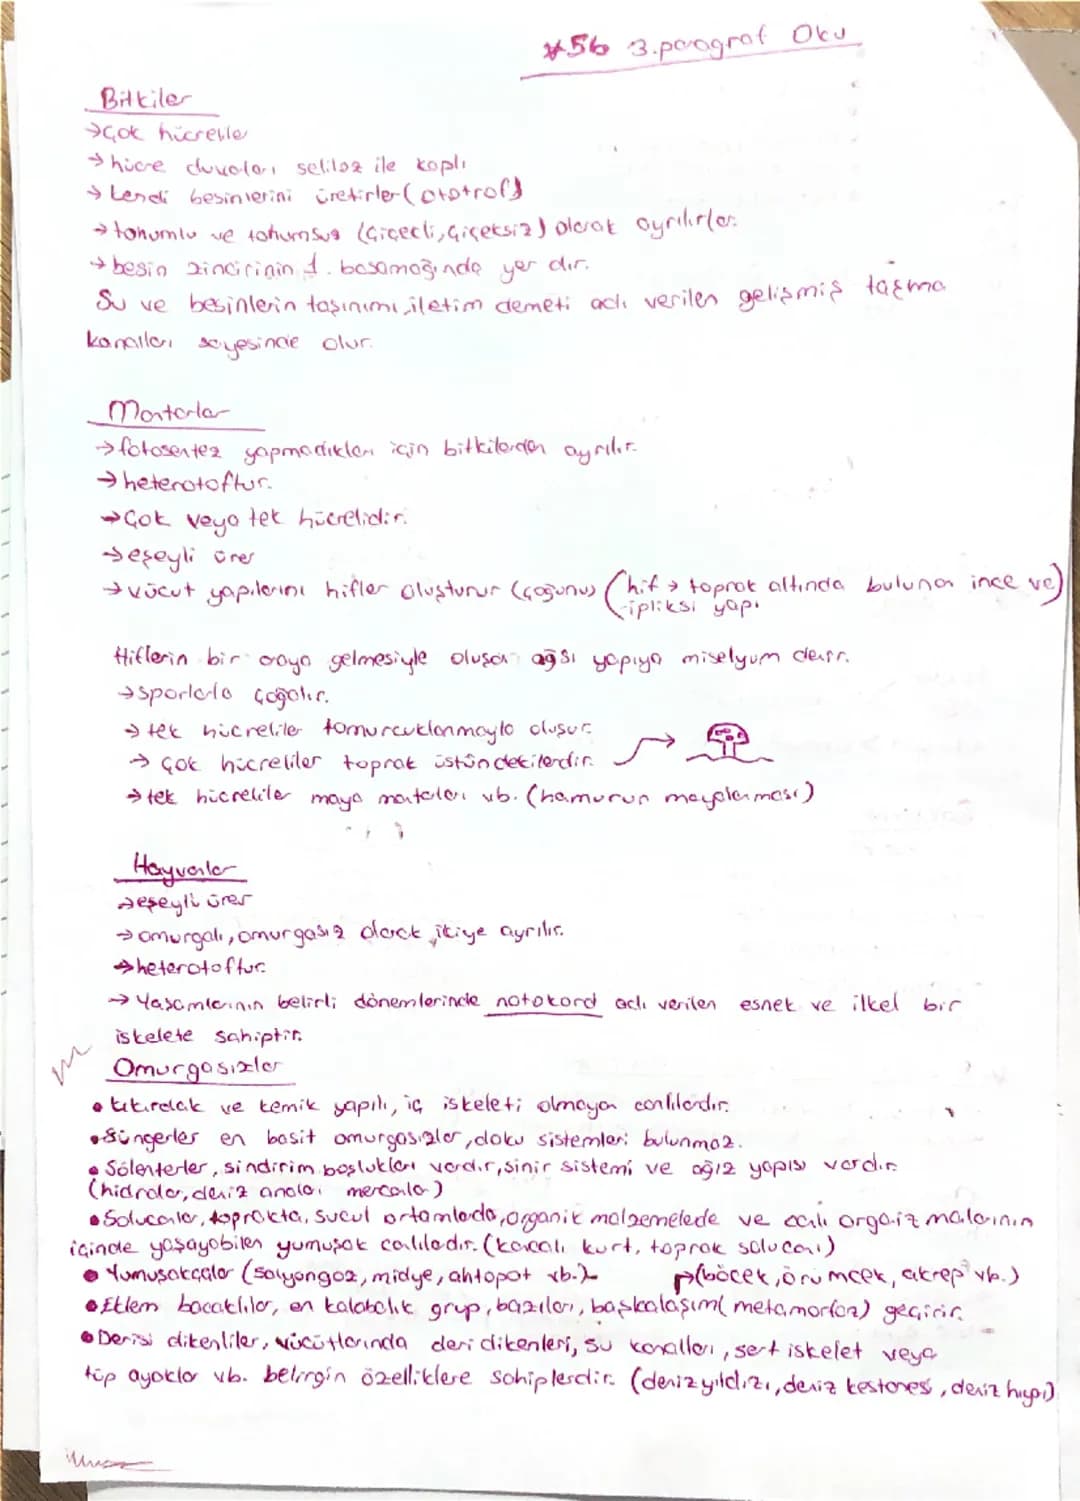 *56 3.paragraf Oku
Bitkiler
→Çok hücreliler
→hücre duvarları seliloz ile kaplı
→kendi besinlerini üretirler (ototrof)
→tohumlu ve tohumsuz (çiçekli, çiçeksiz) olarak ayrılırlar.
→besin zincirinin 1. basamağında yer dır.
Su ve besinlerin taşınımı, iletim demeti adı verilen gelişmiş taşıma
kanalları sayesinde olur.
Mantarlar
→fotosentez yapmadıkları için bitkilerden ayrılır.
→heterotoftur.
→Çok veya tek hücrelidir.
→eşeyli ürer
→vücut yapılarını hifler oluşturur (çoğunu) (hif → toprak altında bulunan ince ve
ipliksi yapı)
Hiflerin bir araya gelmesiyle oluşan ağsı yapıya miselyum denir.
→sporlarla çoğalır.
→tek hücreliler tomurcuklanmayla oluşur.
→ çok hücreliler toprak üstündekilerdir.
→tek hücreliler maya mantarları vb. (hamurun mayalanması)
Hayvanlar
→eşeyli ürer
→omurgalı, omurgasız olarak ikiye ayrılır.
→heterotoftur.
→ Yaşamlarının belirli dönemlerinde notokord adı verilen esnek ve ilkel bir
iskelete sahiptir.
Omurgasızlar
• kıkırdak ve kemik yapılı, iç iskeleti olmayan canlılardır.
• Süngerler en basit omurgasızlar, doku sistemleri bulunmaz.
• Sölenterler, sindirim boşlukları vardır, sinir sistemi ve ağız yapısı vardır.
(hidralar, deniz anaları mercanlar)
• Solucanlar, toprakta, sucul ortamlarda, organik malzemelede ve canlı organizmalarının
içinde yaşayabilen yumuşak canlılardır. (kancalı kurt, toprak solucanı)
• Yumuşakçalar (salyongoz, midye, ahtopot vb.)
(böcek, örümcek, akrep vb.)
• Eklem bacaklılar, en kalabalık grup, bazıları, başkalaşım (metamorfoz) geçirir.
• Derisi dikenliler, vücutlarında deri dikenleri, su kanalları, sert iskelet veya
tüp ayaklar vb. belirgin özelliklere sahiplerdir. (deniz yıldızı, deniz kestanesi, deniz hıyarı)